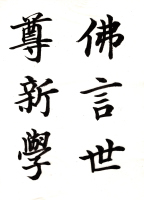 佛言世
尊新學